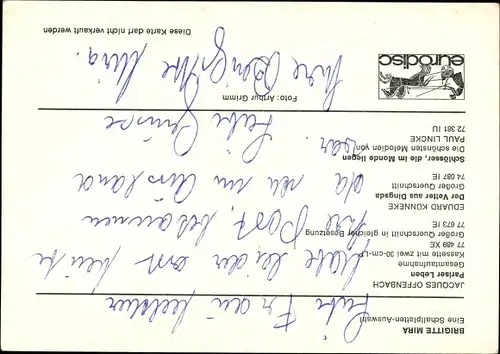 BRIGITTE MIRA
Eine Schallplatten-Auswahl
JACQUES OFFENBACH
Pariser Leben
Gesamtaufnahme
Kassette mit zwei 30-cm-Lp
77 489 XE
Großer Querschnitt in gleicher Besetzung
77 673 IE
EDUARD KÜNNEKE
Der Vetter aus Dingsda
Großer Querschnitt
74 087 IE
Schlösser, die im Monde liegen
Die schönsten Melodien von
PAUL LINCKE
72 381 IU
Liebe Frau
habe leider erst heute
Ihre Post bekommen
da ich im Ausland
war.
Liebe Grüsse
Ihre Brigitte Mira.
Foto: Arthur Grimm
eurodisc
Diese Karte darf nicht verkauft werden